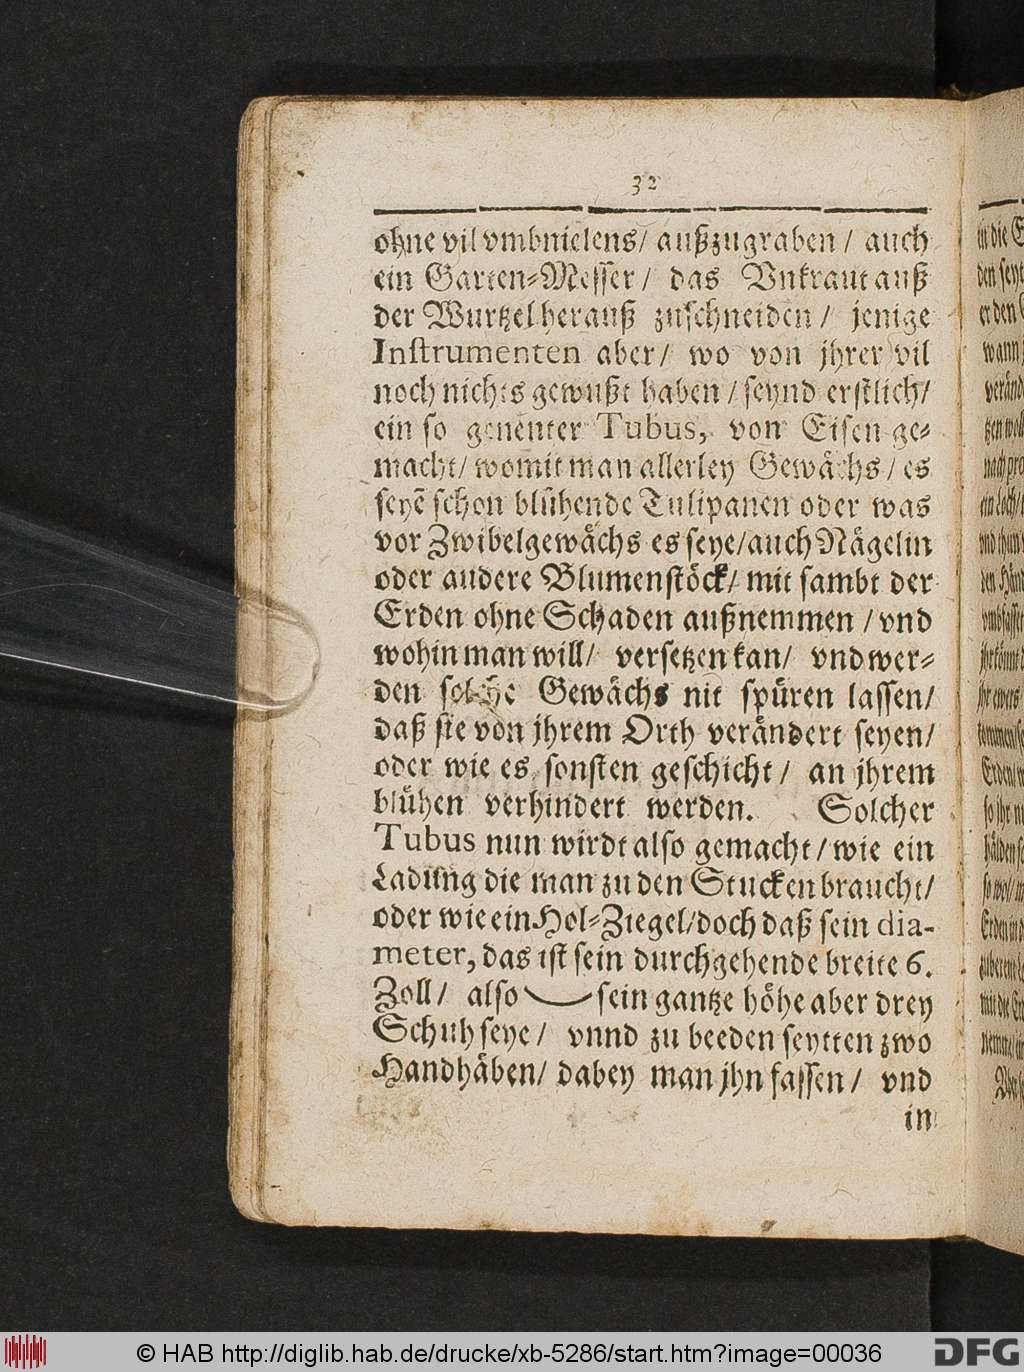 32
ohne vil vmbnielens/ außzugraben / auch
ein Garten-Messer/ das Vnkraut auß
der Wurtzel herauß zuschneiden / jenige
Instrumenten aber/ wo von jhrer vil
noch nichts gewußt haben / seynd erstlich/
ein so genenter Tubus, von Eisen ge-
macht/ womit man allerley Gewächs / es
seyẽ schon blühende Tulipanen oder was
vor Zwibelgewächs es seye/auch Nägelin
oder andere Blumenstöck/ mit sambt der
Erden ohne Schaden außnemmen / vnd
wohin man will/ versetzen kan/ vnd wer-
den solche Gewächs nit spüren lassen/
daß sie von jhrem Orth verändert seyen/
oder wie es sonsten geschicht/ an jhrem
blühen verhindert werden. Solcher
Tubus nun wirdt also gemacht/ wie ein
Ladung die man zu den Stucken braucht/
oder wie ein Hol-Ziegel/doch daß sein dia-
meter, das ist sein durchgehende breite 6.
Zoll/ also sein gantze höhe aber drey
Schuh seye/ vnnd zu beeden seytten zwo
Handhäben/ dabey man jhn fassen/ vnd
in
© HAB http://diglib.hab.de/drucke/xb-5286/start.htm?image=00036
DFG